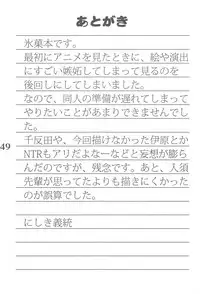 あとがき
氷菓本です。
最初にアニメを見たときに、絵や演出
にすごい嫉妬してしまって見るのを
後回しにしてしまいました。
なので、同人の準備が遅れてしまって
やりたいことがあまりできませんでし
た。
千反田や、今回描けなかった伊原とか
NTRもアリだよなーなどと妄想が膨ら
んだのですが、残念です。あと、入須
先輩が思ってたよりも描きにくかった
のが誤算でした。
にしき義統
49